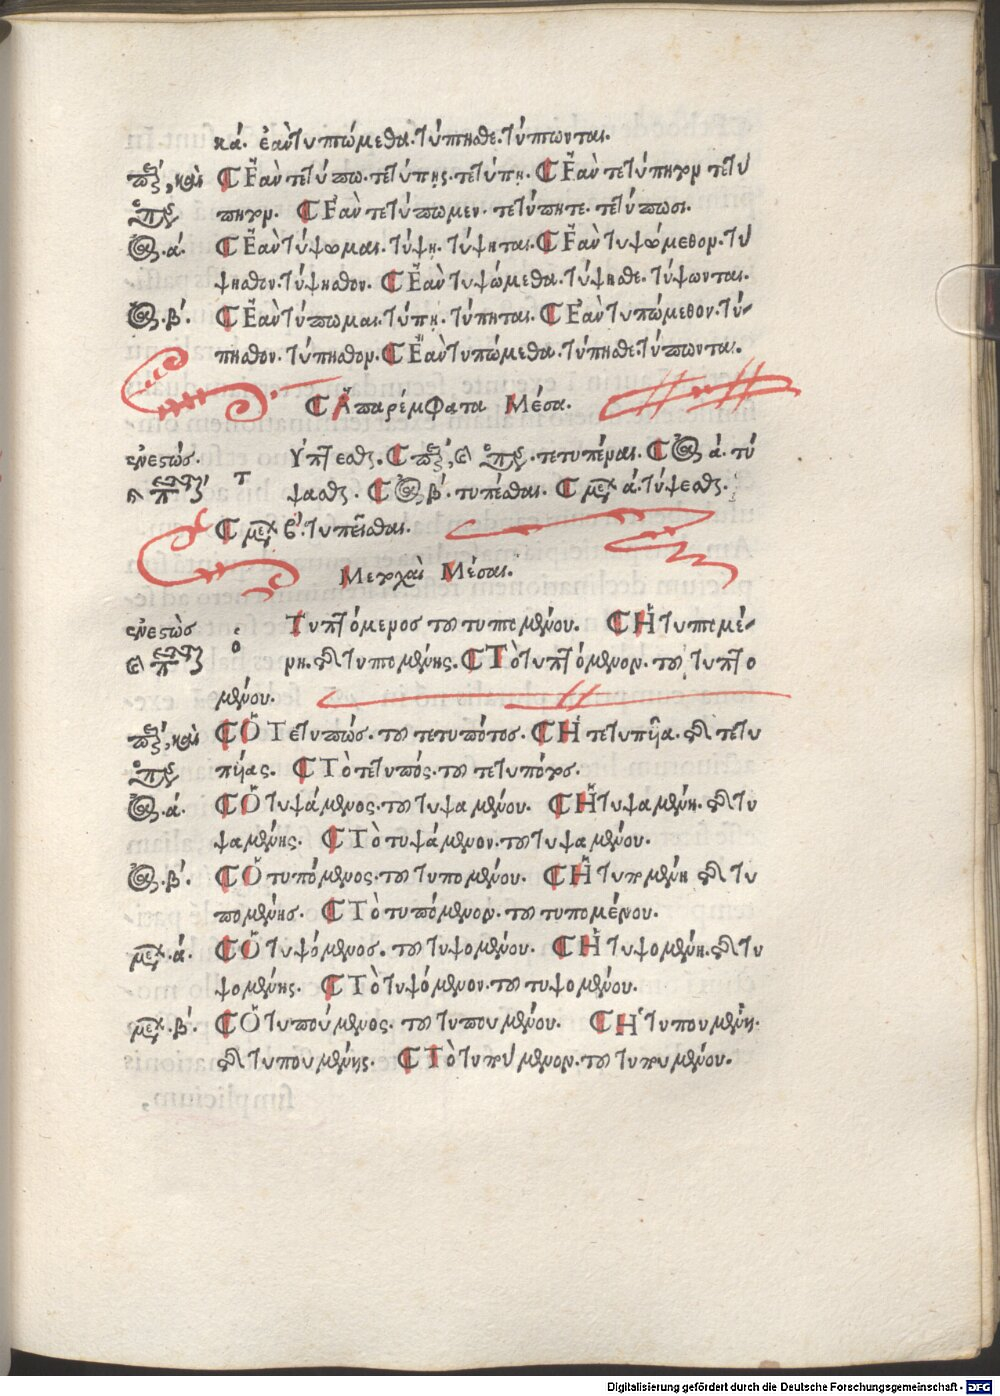 κά. ἐὰν τυπτώμεθα. τύπησθε. τύπτωνται.
καὶ Ἐὰν τετύπω. τετύπης. τετύπῃ. Ἐὰν τετύπητον τετυ
πητον. Ἐὰν τετύπωμεν. τετύπητε. τετύπωσι.
ἀ.ά. Ἐὰν τύψωμαι. τύψῃ. τύψηται. Ἐὰν τυψώμεθον. τυ
ψησθον. τύψησθον. Ἐὰν τυψώμεθα. τύψησθε. τύψωνται.
ἀ.β. Ἐὰν τύπωμαι. τύπῃ. τύπηται. Ἐὰν τυπώμεθον. τύ-
πησθον. τύπησθον. Ἐὰν τυπώμεθα. τύπησθε. τύπωνται.
Ἀπαρέμφατα Μέσα.
ἐνεστώς. τ ύπτεσθαι. τετυπέναι. ά. τύ
ψασθαι. β. τυπέσθαι. ά. τύψεσθαι.
β. τυπεῖσθαι.
Μετοχαὶ Μέσαι.
ἐνεστὼς ὁ Τυπτόμενος του τυπτομένου. Ἡ τυπτομέ-
νη. τῆς τυπτομένης. Τὸ τυπτόμενον. του τυπτο
μένου.
καὶ Ὁ Τετυπώς. του τετυπότος. Ἡ τετυπῆα. τῆς τετυ
πήας. Τὸ τετυπός. του τετυπότος.
ἀ.ά. Ὁ τυψάμενος. του τυψαμένου. Ἡ τυψαμένη. τῆς τυ
ψαμένης. Τὸ τυψάμενον. του τυψαμένου.
ἀ.β. Ὁ τυπόμενος. του τυπομένου. Ἡ τυπομένη τῆς τυ
πομένης. Τὸ τυπόμενον. του τυπομένου.
μελ.ά. Ὁ τυψόμενος. του τυψομένου. Ἡ τυψομένη. τῆς τυ
ψομένης. Τὸ τυψόμενον. του τυψομένου.
μελ.β. Ὁ τυπούμενος. του τυπουμένου. Ἡ τυπουμένη.
τῆς τυπουμένης. Τὸ τυπούμενον. του τυπουμένου.
Digitalisierung gefördert durch die Deutsche Forschungsgemeinschaft - DFG